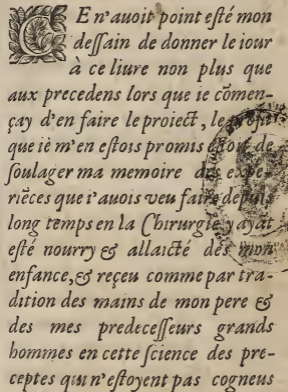 CE n'auoit point esté mon
dessain de donner le iour
à ce liure non plus que
aux precedens lors que ie cõmen-
çay d'en faire le proiect, le
que ie m'en estois promis estoit de
soulager ma memoire des expe-
riẽces que i'auois veu faire depuis
long temps en la Chirurgie, y ayãt
esté nourry & allaicté dés mon
enfance, & reçeu comme par tra-
dition des mains de mon pere &
des mes predecesseurs grands
hommes en cette science des pre-
ceptes qui n'estoyent pas cogneus